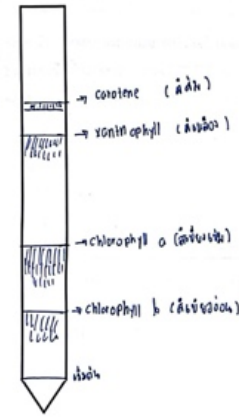 → carotene (สีส้ม)
→ xanthophyll (สีเหลือง)
→ chlorophyll a (สีเขียวเข้ม)
→ chlorophyll b (สีเขียวอ่อน)
เริ่มต้น